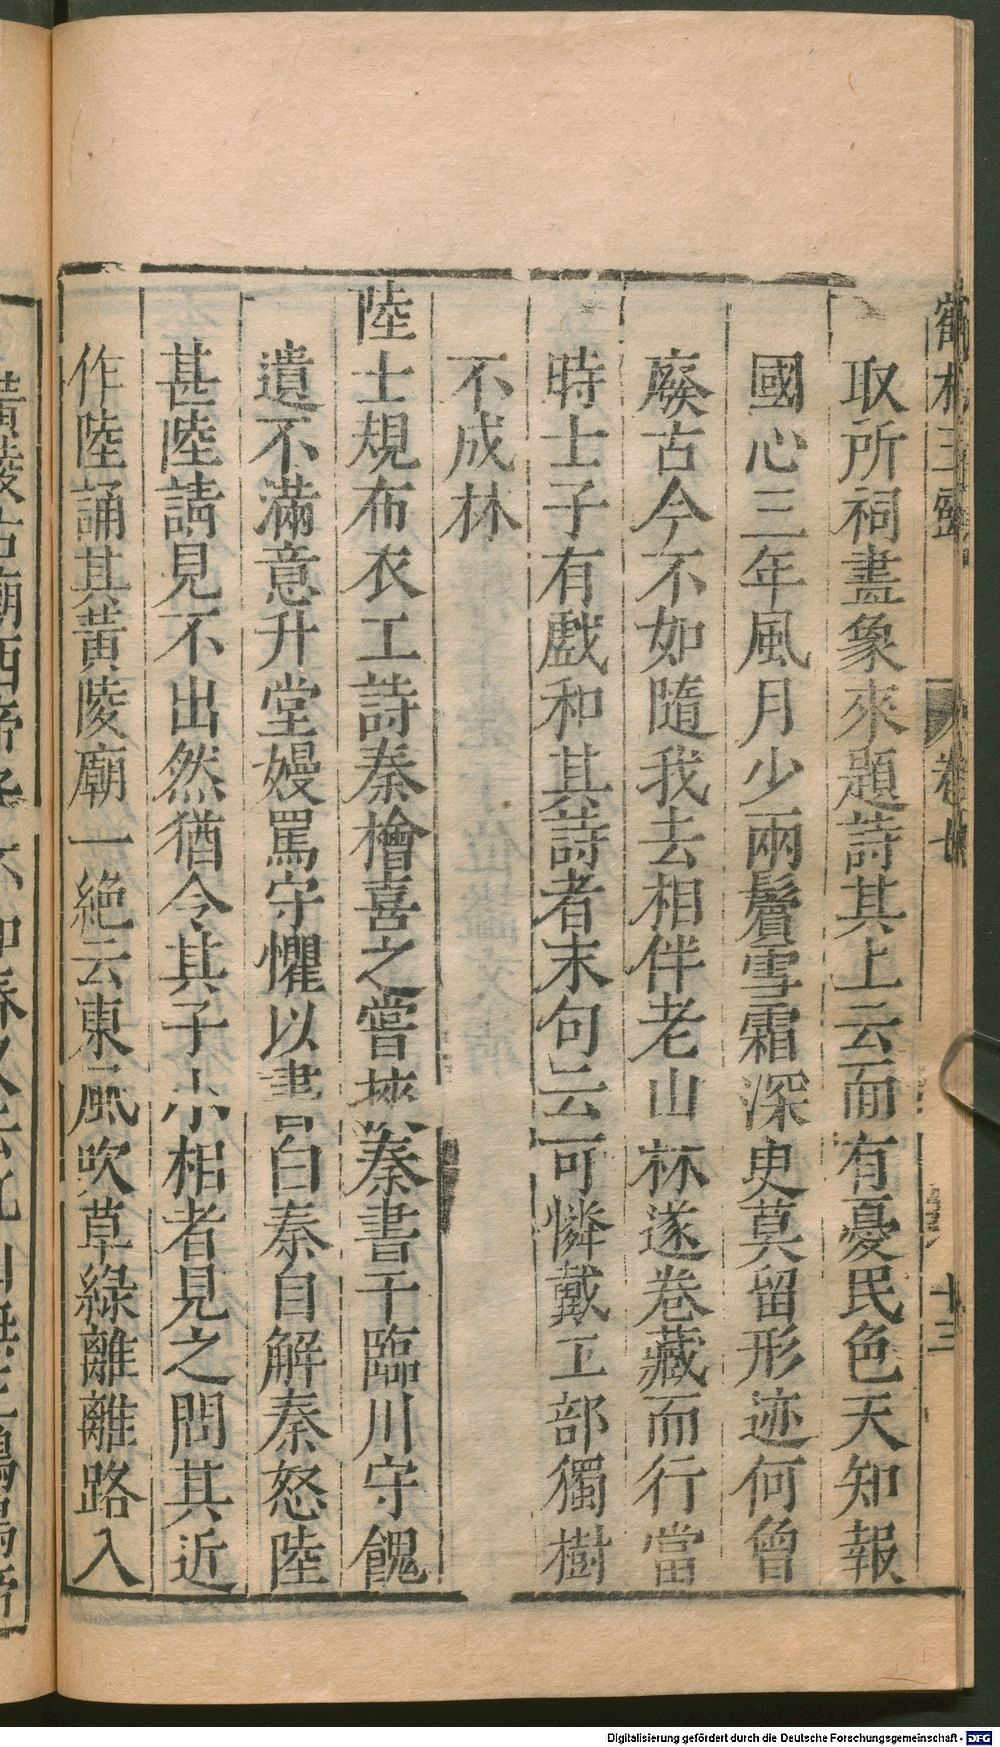 鶴林玉露
卷
十三
取所祠畫象來題詩其上云面有憂民色天知報
國心三年風月少兩鬢雪霜深更莫留形迹何曾
廢古今不如隨我去相伴老山林遂卷藏而行當
時士子有戲和其詩者末句云可憐戴工部獨樹
不成林
陸士規布衣工詩秦檜喜之嘗挾秦書干臨川守餽
遺不滿意升堂嫚罵守懼以書白秦自解秦怒陸
甚陸請見不出然猶令其子小相者見之問其近
作陸誦其黃陵廟一絶云東風吹草綠離離路入
黃陵古廟西帝
春又
Digitalisierung gefördert durch die Deutsche Forschungsgemeinschaft - DFG